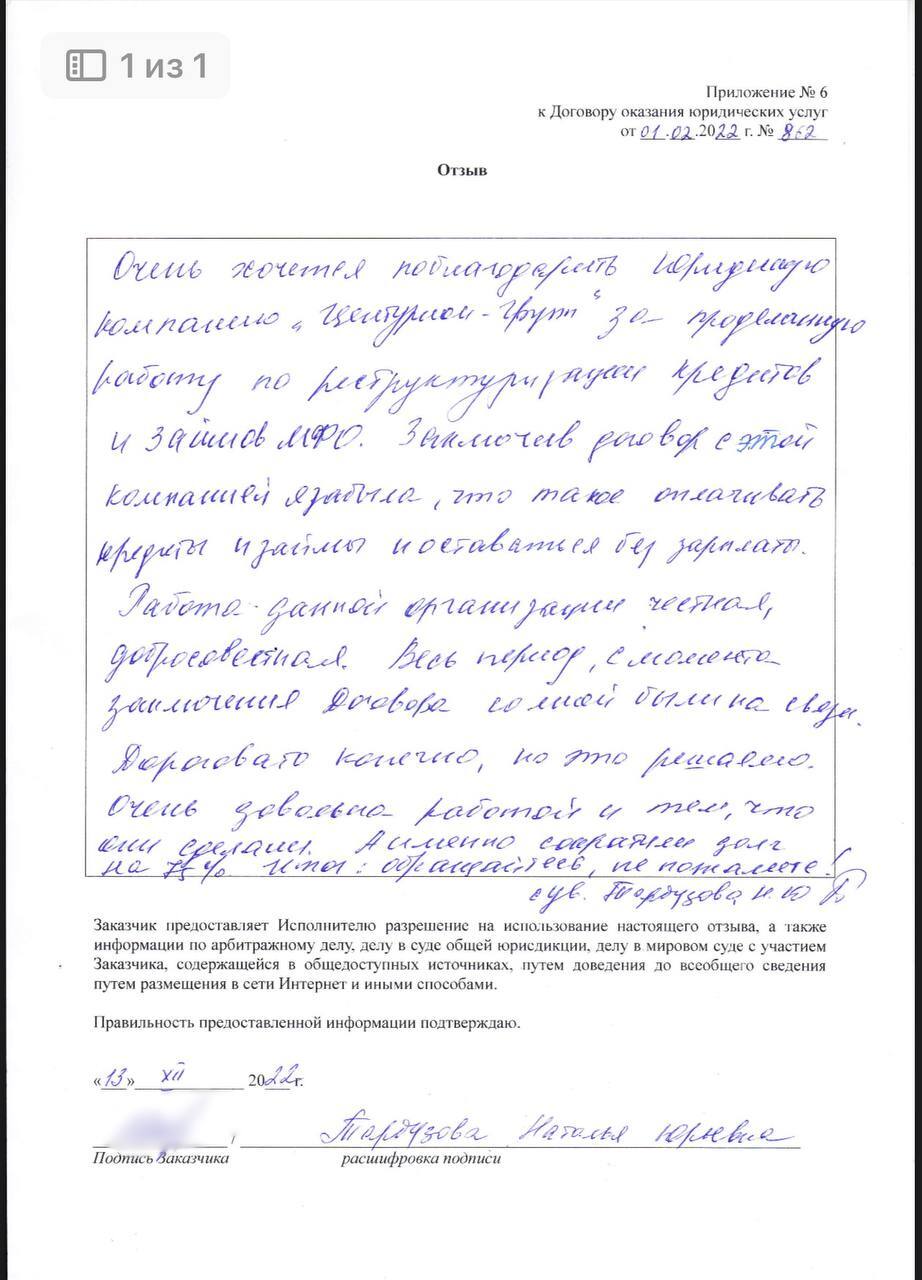 1 из 1
Приложение № 6
к Договору оказания юридических услуг
от 01.02.2022 г. № 862
Отзыв
Очень хочется поблагодарить Юридическую
компанию „Центурион-Групп“ за проделанную
работу по реструктуризации кредитов
и займов МФО. Заключив договор с этой
компанией я забыла, что такое оплачивать
кредиты и займы и оставаться без зарплаты.
Работа данной организации честная,
добросовестная. Весь период, с момента
заключения Договора со мной были на связи.
Дороговато конечно, но это решаемо.
Очень довольна работой и тем, что
они сделали. А именно сократили долг
на 75% Итог: обращайтесь, не пожалеете!
с ув. Тардузова Н.Ю
Заказчик предоставляет Исполнителю разрешение на использование настоящего отзыва, а также
информации по арбитражному делу, делу в суде общей юрисдикции, делу в мировом суде с участием
Заказчика, содержащейся в общедоступных источниках, путем доведения до всеобщего сведения
путем размещения в сети Интернет и иными способами.
Правильность предоставленной информации подтверждаю.
«13» XII 2022 г.
/ Тардузова Наталья Юрьевна
Подпись Заказчика расшифровка подписи